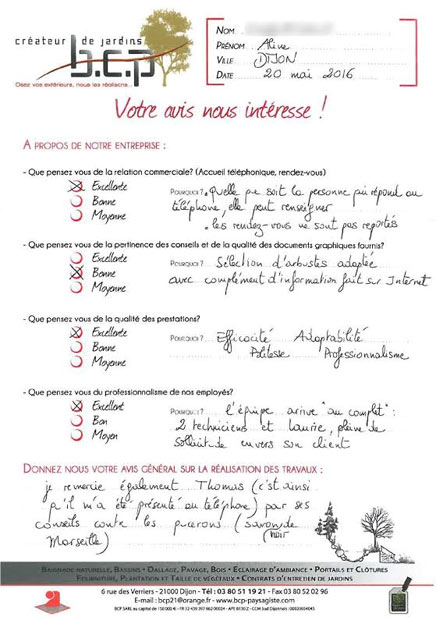 créateur de jardins
b.c.p
Osez vos extérieurs, nous les réalisons...
NOM
PRÉNOM Aline
VILLE DIJON
DATE 20 mai 2016
Votre avis nous intéresse !
A PROPOS DE NOTRE ENTREPRISE :
- Que pensez vous de la relation commerciale? (Accueil téléphonique, rendez-vous)
Excellente
Bonne
Moyenne
POURQUOI ? . Quelle que soit la personne qui répond au
téléphone, elle peut renseigner
. les rendez-vous ne sont pas reportés
- Que pensez vous de la pertinence des conseils et de la qualité des documents graphiques fournis?
Excellente
Bonne
Moyenne
POURQUOI ? Sélection d'arbustes adaptée
avec complément d'information fait sur Internet
- Que pensez vous de la qualité des prestations?
Excellente
Bonne
Moyenne
POURQUOI ? Efficacité Adaptabilité
Politesse Professionnalisme
- Que pensez vous du professionnalisme de nos employés?
Excellent
Bon
Moyen
POURQUOI ? l'équipe arrive "au complet" :
2 techniciens et Laurie, pleine de
sollicitude envers son client
DONNEZ NOUS VOTRE AVIS GÉNÉRAL SUR LA RÉALISATION DES TRAVAUX :
je remercie également Thomas (c'est ainsi
qu'il m'a été présenté au téléphone) par ses
conseils contre les pucerons (savon noir de
Marseille)
BAIGNADE NATURELLE, BASSINS • DALLAGE, PAVAGE, BOIS • ECLAIRAGE D'AMBIANCE • PORTAILS ET CLÔTURES
FOURNITURE, PLANTATION ET TAILLE DE VÉGÉTAUX • CONTRATS D'ENTRETIEN DE JARDINS
6 rue des Verriers - 21000 Dijon - Tél : 03 80 51 19 21 - Fax 03 80 52 02 96
E-mail : bcp21@orange.fr - www.bcp-paysagiste.com
BCP SARL au capital de